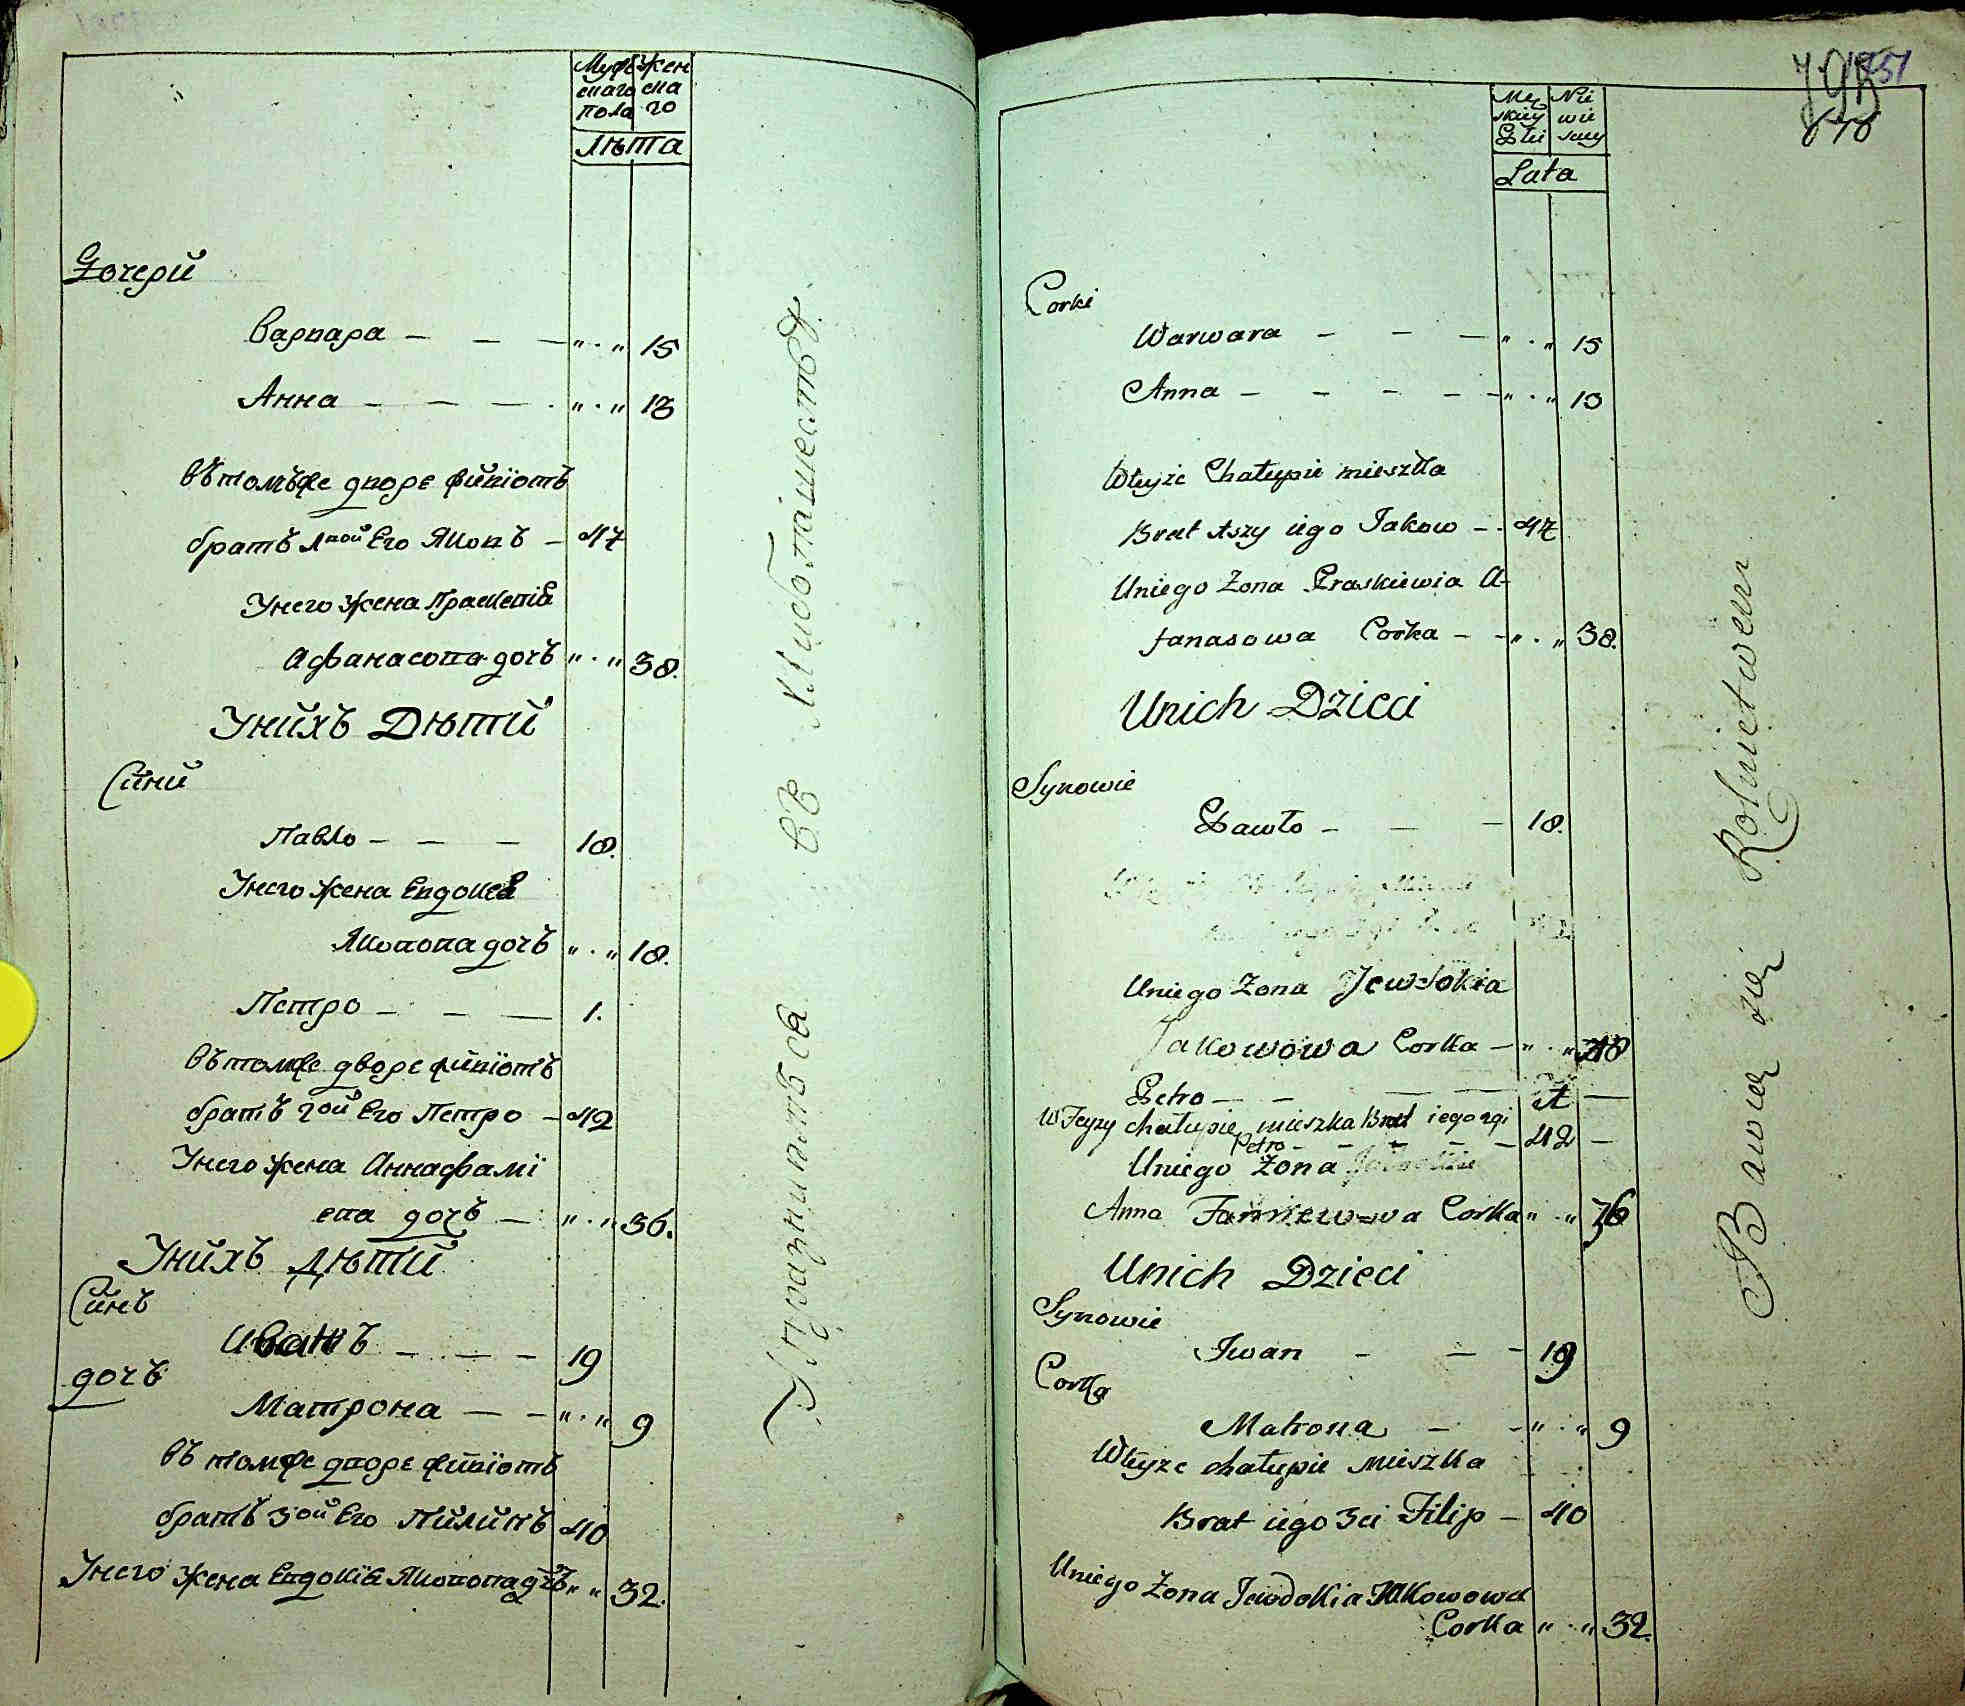 Мужескаго пола
Женскаго
Лѣта
Дочери
Варвара — — — „ . „ 15
Анна — — — „ . „ 13
Въ томъже дворе живіотъ
братъ 1ной Его Яковъ — 47
Унего жена Праскевія
Афанасова дочъ „ . „ 38.
Унихъ Дѣти
Сини
Павло — — — 18.
Унего жена Евдокея
Яковова дочъ „ . „ 18.
Петро — — — 1.
Въ томже дворе живіотъ
братъ 2ой Его Петро — 42
Унего жена Анна Фамі
ева дочъ — „ . „ 36.
Унихъ Дѣти
Синъ
Иванъ — — — 19
дочъ
Матрона — — „ . „ 9
Въ томже дворе живіотъ
братъ 3ой Его Пилипъ 40
Унего жена Евдокія Яковова дочъ „ „ 32.
Упражниться въ хлибопашестве.
151
Męskiey Płci
Niewiescey
Lata
Corki
Warwara — — — „ . „ 15
Anna — — — — „ . „ 13
Wteyże Chałupie mieszka
Brat 1szy iego Jakow — 47
Uniego Zona Praskiewia A-
fanasowa Corka — „ . „ 38.
Unich Dzieci
Synowie
Pawło — — — 18.
Uniego Zona Jewdokia
Jakowowa Corka — „ . „ 18
Petro — — — 1 —
W Teyży chałupie mieszka Brat iego 2gi
Petro — — — — 42 —
Uniego Zona
Anna Famiewowa Corka „ . „ 36
Unich Dzieci
Synowie
Iwan — — — 19
Corka
Matrona — — „ . „ 9
Wteyże chałupie mieszka
Brat iego 3ci Filip — 40
Uniego Zona Jewdokia Jakowowa
Corka „ . „ 32.
Bawią się Rolnictwem